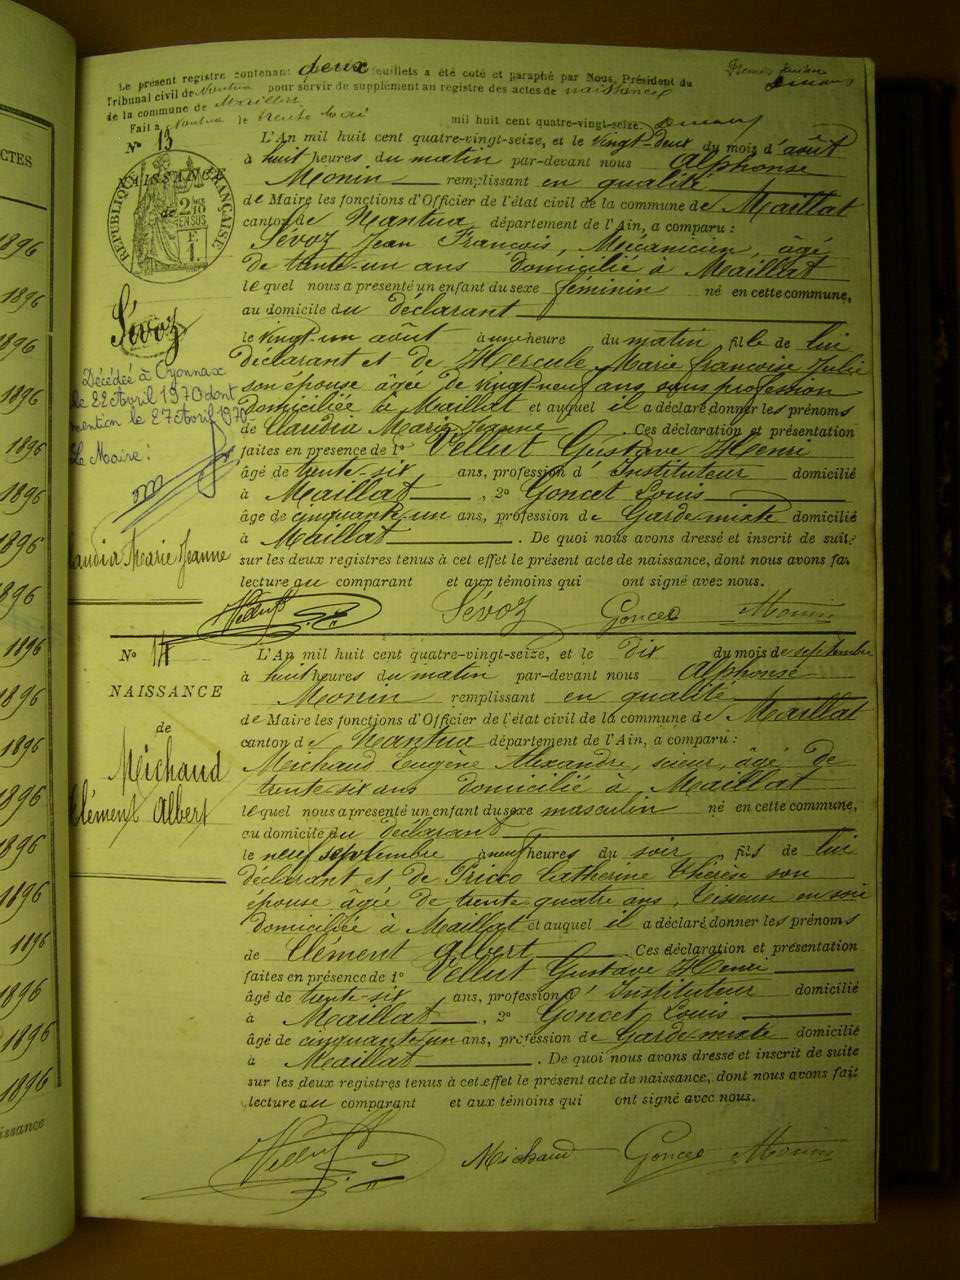 Le présent registre contenant deux feuillets a été coté et paraphé par Nous, Président du
Tribunal civil de Nantua pour servir de supplément au registre des actes de naissances
de la commune de Maillat
Fait à Nantua le trente Mai mil huit cent quatre-vingt-seize
N° 13
NAISSANCE
de
RÉPUBLIQUE FRANÇAISE
L'An mil huit cent quatre-vingt-seize, et le vingt-deux du mois d'août
à huit heures du matin par-devant nous Alphonse
Monin remplissant en qualité
de Maire les fonctions d'Officier de l'état civil de la commune de Maillat
canton de Nantua département de l'Ain, a comparu :
Sévoz Jean François, Mécanicien, âgé
de trente-un ans domicilié à Maillat
lequel nous a présenté un enfant du sexe féminin né en cette commune,
au domicile du déclarant
le vingt-un août à une heure du matin fille de lui
déclarant et de Hercule Marie françoise Julie
son épouse âgée de vingt neuf ans sans profession
domiciliée à Maillat et auquel il a déclaré donner les prénoms
de Claudia Marie Jeanne. Ces déclaration et présentation
faites en présence de 1° Vellut Gustave Henri
âgé de trente-six ans, profession d'Instituteur domicilié
à Maillat, 2° Goncet Louis
âgé de cinquante-un ans, profession de Garde-mixte domicilié
à Maillat. De quoi nous avons dressé et inscrit de suite
sur les deux registres tenus à cet effet le présent acte de naissance, dont nous avons fai
lecture au comparant et aux témoins qui ont signé avec nous.
Vellut Sévoz Goncet Monin
Sévoz
Décédée à Oyonnax
le 22 Avril 1970 dont
mention le 27 Avril 1970
Le Maire :
Claudia Marie Jeanne
N° 14
NAISSANCE
de
Michaud
Clément Albert
L'An mil huit cent quatre-vingt-seize, et le dix du mois de septembre
à huit heures du matin par-devant nous Alphonse
Monin remplissant en qualité
de Maire les fonctions d'Officier de l'état civil de la commune de Maillat
canton de Nantua département de l'Ain, a comparu :
Michaud Eugène Alexandre, scieur, âgé de
trente-six ans domicilié à Maillat
lequel nous a présenté un enfant du sexe masculin né en cette commune,
au domicile du déclarant
le neuf septembre à neuf heures du soir fils de lui
déclarant et de Tricco Catherine Thérèse son
épouse âgée de trente quatre ans, Tisseuse en soie
domiciliée à Maillat et auquel il a déclaré donner les prénoms
de Clément Albert. Ces déclaration et présentation
faites en présence de 1° Vellut Gustave Henri
âgé de trente-six ans, profession d'Instituteur domicilié
à Maillat, 2° Goncet Louis
âgé de cinquante un ans, profession de Garde-mixte domicilié
à Maillat. De quoi nous avons dressé et inscrit de suite
sur les deux registres tenus à cet effet le présent acte de naissance, dont nous avons fait
lecture au comparant et aux témoins qui ont signé avec nous.
Vellut Michaud Goncet Monin
CTES
1896
1896
1896
1896
1896
1896
1896
1896
1896
1896
1896
1896
1896
1896
1896
1896
1896
1896
issance